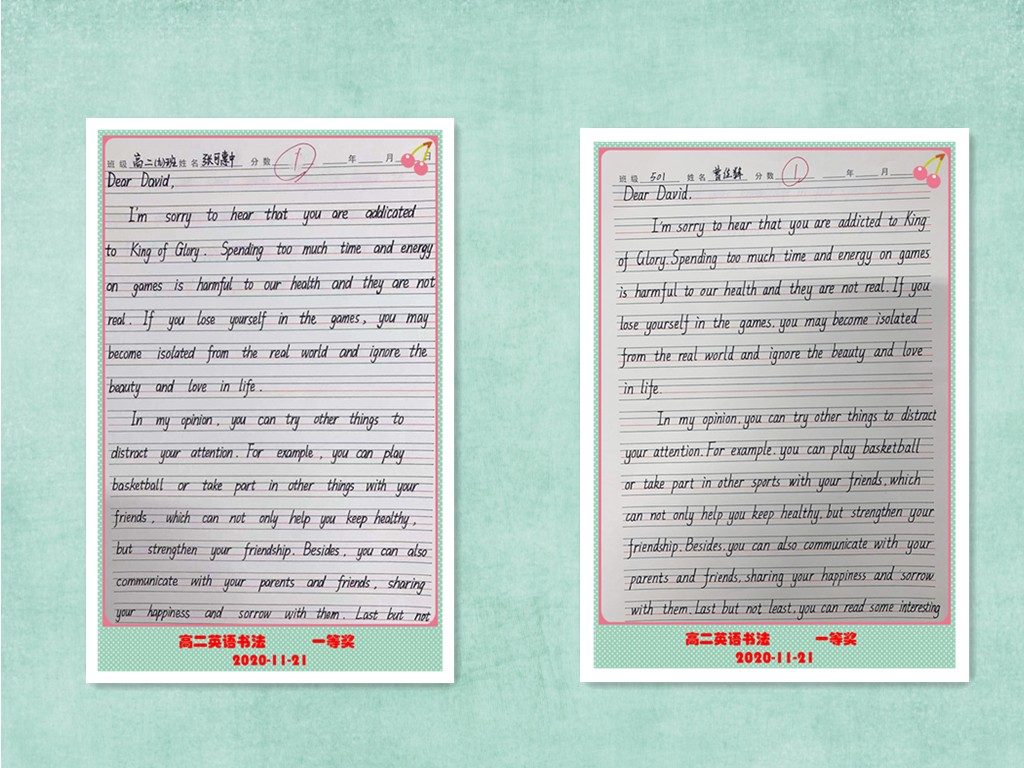 班级 高二(5)班 姓名 张可惠中 分数 1 年 月 日
Dear David,
I'm sorry to hear that you are addicated
to King of Glory. Spending too much time and energy
on games is harmful to our health and they are not
real. If you lose yourself in the games, you may
become isolated from the real world and ignore the
beauty and love in life.
In my opinion, you can try other things to
distract your attention. For example, you can play
basketball or take part in other things with your
friends, which can not only help you keep healthy,
but strengthen your friendship. Besides, you can also
communicate with your parents and friends, sharing
your happiness and sorrow with them. Last but not
高二英语书法 一等奖
2020-11-21
班级 501 姓名 曾佳 分数 1 年 月
Dear David.
I'm sorry to hear that you are addicted to King
of Glory. Spending too much time and energy on games
is harmful to our health and they are not real. If you
lose yourself in the games, you may become isolated
from the real world and ignore the beauty and love
in life.
In my opinion, you can try other things to distract
your attention. For example, you can play basketball
or take part in other sports with your friends, which
can not only help you keep healthy, but strengthen your
friendship. Besides, you can also communicate with your
parents and friends, sharing your happiness and sorrow
with them. Last but not least, you can read some interesting
高二英语书法 一等奖
2020-11-21